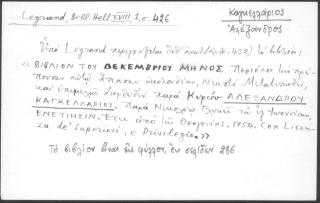 Legrand, Bibl. Hell. XVIII, 1, σ. 426
Καγκελλάριος
Ἀλέξανδρος
Ὑπὸ Legrand περιγράφεται ὑπ' ἀριθ. 432) τὸ βιβλίον:
« ΒΙΒΛΙΟΝ ΤΟΥ ΔΕΚΕΜΒΡΙΟΥ ΜΗΝΟΣ Περιέχον τὴν πρέ-
πουσαν αὐτῷ ἅπασαν ἀκολουθίαν,
καὶ ἐπιμελῶς διορθωθὲν παρὰ Κυρίου ΑΛΕΞΑΝΔΡΟΥ
ΚΑΓΚΕΛΛΑΡΙΟΥ. Παρὰ Νικολάῳ Γλυκεῖ τῷ ἐξ Ἰωαννίνων,
ΕΝΕΤΙΗΣΙΝ. Ἔτει ἀπὸ τῆς Θεογονίας. 1754. Con Licen-
za de' Superiori, e Privilegio.»
Τὸ βιβλίον εἶναι εἰς φύλλον, ἐκ σελίδων 286